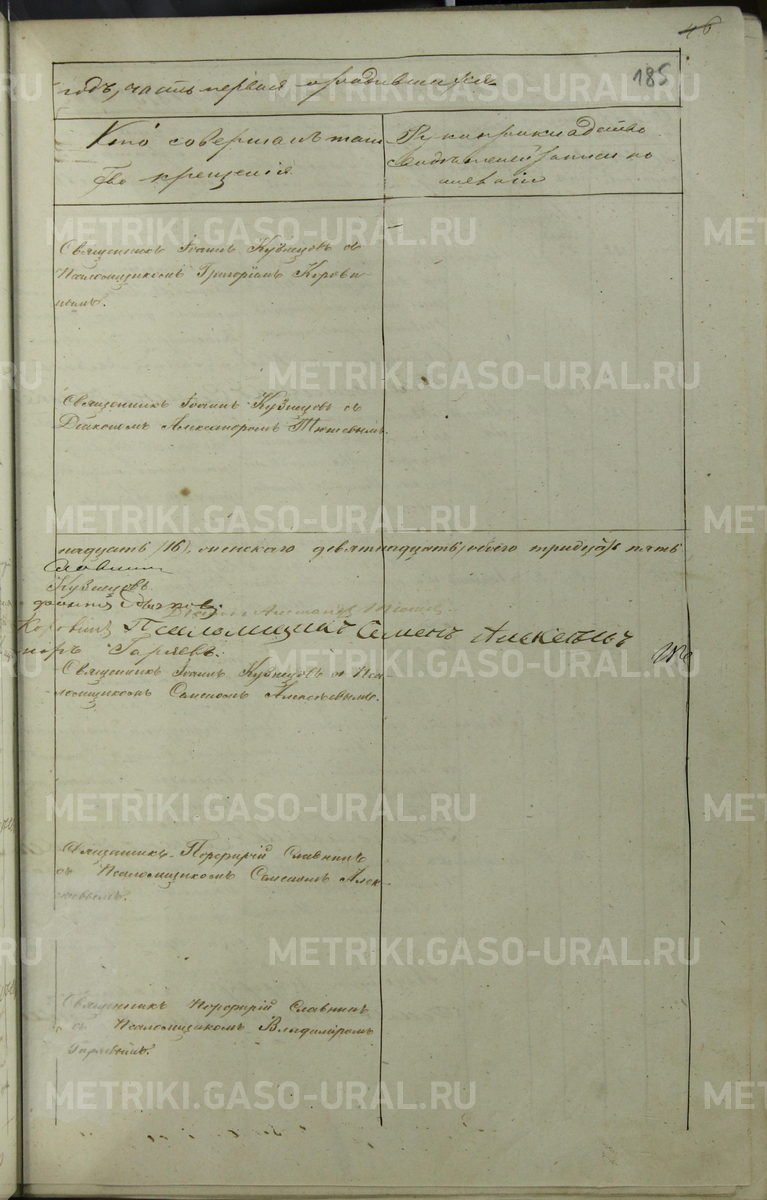 46
185
годъ, часть первая о родившихся
Кто совершалъ таин
ство крещенія
Рукоприкладство
свидѣтелей записи по
желанію
Священникъ Іоаннъ Кузнецовъ съ
Псаломщикомъ Григоріемъ Корови-
нымъ.
Священникъ Іоаннъ Кузнецовъ съ
Діакономъ Александромъ Тюшевымъ.
надцать (16), женскаго девятнадцать, обоего тридцать пять
Славнинъ
Кузнецовъ
Коровинъ Псаломщикъ Семенъ Алексѣевъ
Горяевъ.
Священникъ Іоаннъ Кузнецовъ съ Пса-
ломщикомъ Семеномъ Алексѣевымъ.
Священникъ Порфирій Славнинъ
съ Псаломщикомъ Семеномъ Алек-
сѣевымъ.
Священникъ Порфирій Славнинъ
съ Псаломщикомъ Владиміромъ
Горяевымъ.
METRIKI.GASO-URAL.RU